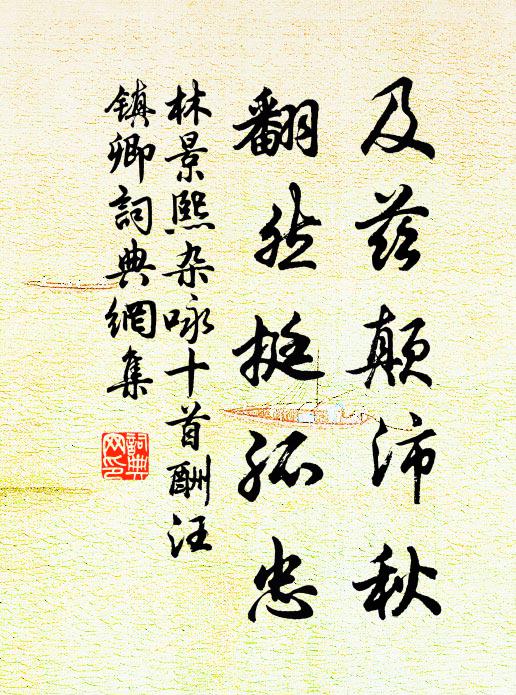 及兹颠沛秋
翻然挺孤忠
林景熙杂咏十首酬汪
镇卿词典網集
詞典網印